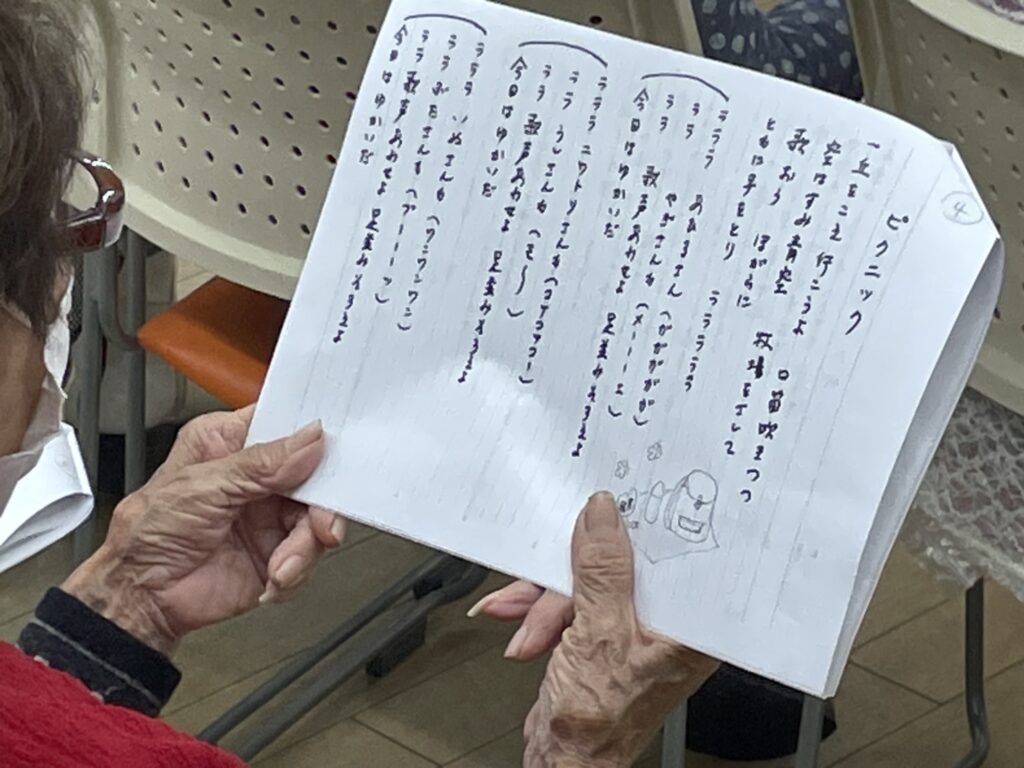 ④
ピクニック
一 丘をこえ行こうよ 口笛吹きつつ
空はすみ青空 牧場をさして
歌おう ほがらかに
ともに手をとり ラララララ
ラララ あひるさん(ガガガガガ)
ララ やぎさんも(メーーーエ)
ララ 歌声あわせよ 足並みそろえよ
今日はゆかいだ
ラララ ニワトリさんも(コケコッコー)
ララ うしさんも(モ〜〜)
ララ 歌声あわせよ 足並みそろえよ
今日はゆかいだ
ラララ いぬさんも(ワンワンワン)
ララ ぶたさんも(ブーーーッ)
ララ 歌声あわせよ 足並みそろえよ
今日はゆかいだ